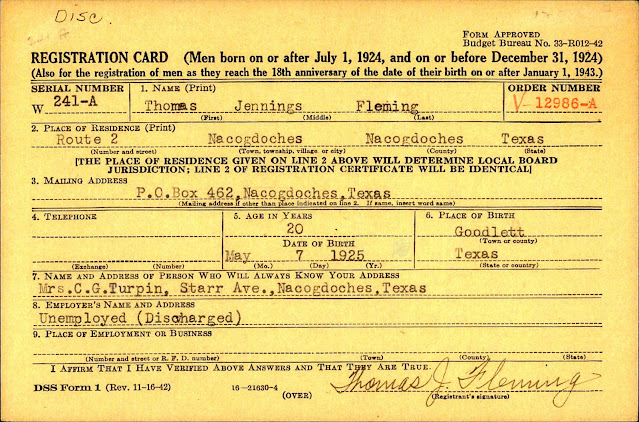 Disc.
FORM APPROVED
Budget Bureau No. 33-R012-42
REGISTRATION CARD (Men born on or after July 1, 1924, and on or before December 31, 1924)
(Also for the registration of men as they reach the 18th anniversary of the date of their birth on or after January 1, 1943.)
SERIAL NUMBER 1. NAME (Print) ORDER NUMBER
W 241-A Thomas Jennings Fleming V-12986-A
(First) (Middle) (Last)
2. PLACE OF RESIDENCE (Print)
Route 2 Nacogdoches Nacogdoches Texas
(Number and street) (Town, township, village, or city) (County) (State)
[THE PLACE OF RESIDENCE GIVEN ON LINE 2 ABOVE WILL DETERMINE LOCAL BOARD
JURISDICTION; LINE 2 OF REGISTRATION CERTIFICATE WILL BE IDENTICAL]
3. MAILING ADDRESS
P.O.Box 462,Nacogdoches,Texas
(Mailing address if other than place indicated on line 2. If same, insert word same)
4. TELEPHONE 5. AGE IN YEARS 6. PLACE OF BIRTH
20 Goodlett
DATE OF BIRTH (Town or county)
May 7 1925 Texas
(Exchange) (Number) (Mo.) (Day) (Yr.) (State or country)
7. NAME AND ADDRESS OF PERSON WHO WILL ALWAYS KNOW YOUR ADDRESS
Mrs.C.G.Turpin, Starr Ave.,Nacogdoches,Texas
8. EMPLOYER'S NAME AND ADDRESS
Unemployed (Discharged)
9. PLACE OF EMPLOYMENT OR BUSINESS
(Number and street or R. F. D. number) (Town) (County) (State)
I AFFIRM THAT I HAVE VERIFIED ABOVE ANSWERS AND THAT THEY ARE TRUE.
DSS Form 1 (Rev. 11-16-42) 16-21630-4 Thomas J. Fleming
(OVER) (Registrant's signature)